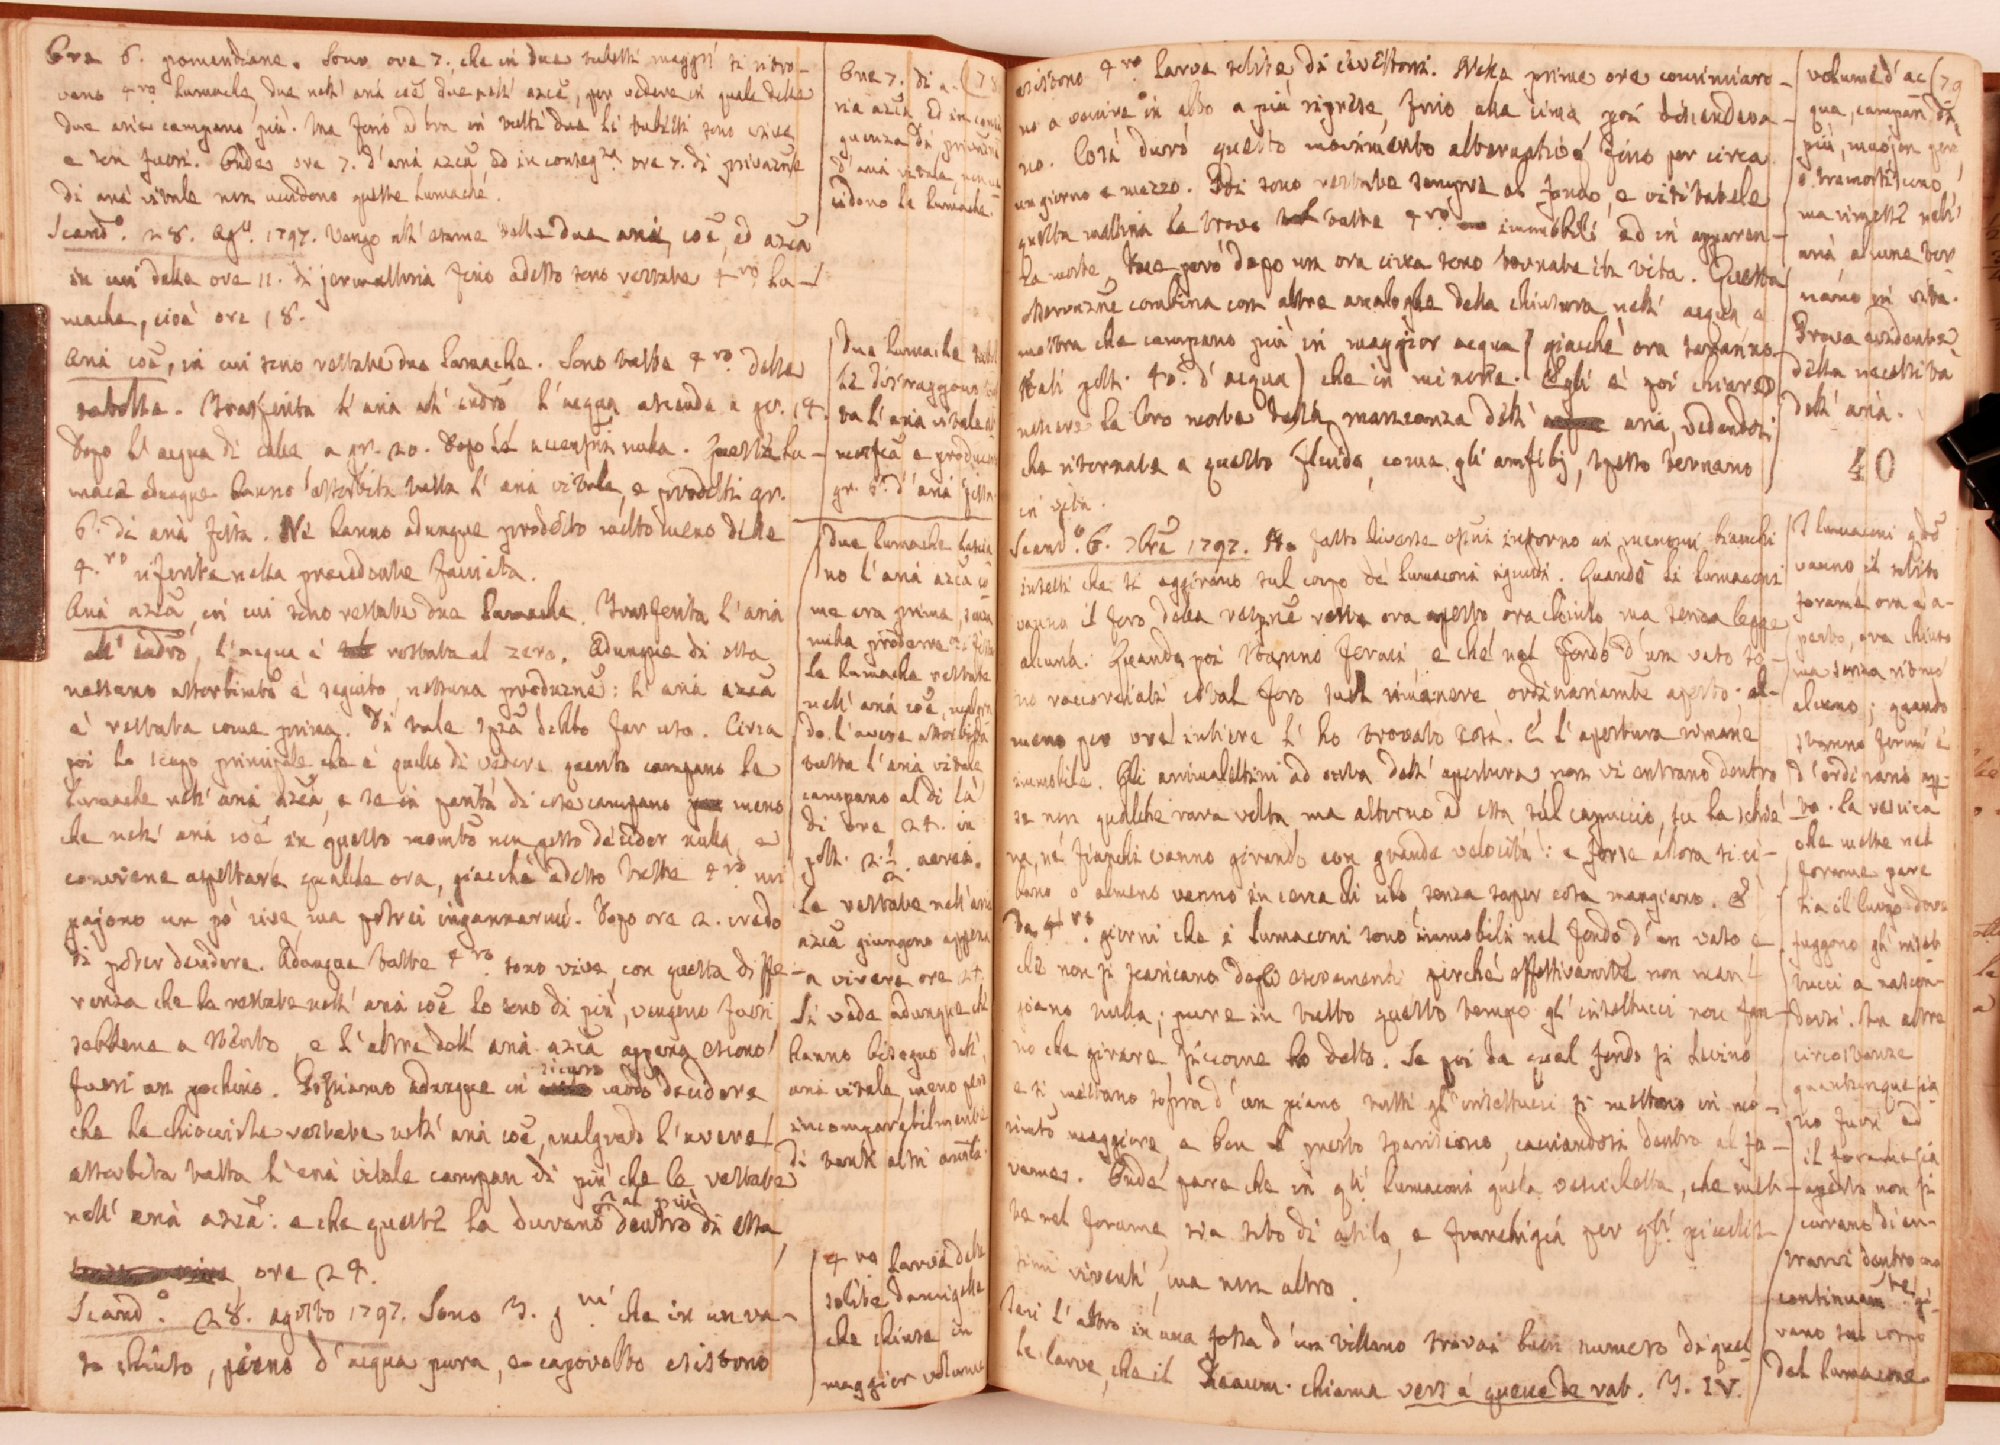 Ore 6. pomeridiane. Sono ore 7. che in due tubetti maggri si ritro-
vano 4ro lumache, due nell' aria coe due nell' azca, per vedere in quale delle
due arie campano più. Ma fino ad ora in tutti due li tubetti sono vive
e son fuori. Onde ore 7. d'aria azca ed in conseg.za ore 7. di privazne
di aria vitale non uccidono queste lumache.
Scand.o 28. Ag.to 1797. Vengo all' esame delle due arie, coe, ed azca
in cui dalle ore 11. di jermattina fino adesso sono restate 4ro lu-
mache, cioè ore 18.
Aria coe, in cui sono restate due lumache. Sono tutte 4ro delle
ridotte. Trasferita l'aria all' eudro l'acqua ascende a gr. 14.
Dopo l'acqua di calce a gr. 20. Dopo le accensni nulla. Queste lu-
mace adunque hanno assorbita tutta l'aria vitale, e prodotti gr.
6. di aria fissa. Ne hanno adunque prodotto molto meno delle
4.ro riferite nella precedente facciata.
Aria azca, in cui sono restate due lumache. Trasferita l'aria
all' eudro, l'acqua è restata al zero. Adunque di essa
nessuno assorbimto è seguito, nessuna produzne: l'aria azca
è restata come prima. Di tale spza debbo far uso. Circa
poi lo scopo principale che è quello di vedere quanto campano le
lumache nell' aria azca, e se in parità di cose campano meno
che nell' aria coe in questo momto non posso decider nulla, e
conviene aspettare qualche ora, giacchè adesso tutte 4ro mi
pajono un pò vive ma potrei ingannarmi. Dopo ore 2. credo
di poter decidere. Adunque tutte 4ro sono vive con questa diffe-
renza che le restate nell' aria coe lo sono di più, vengono fuori
sebbene a stento, e l'altre dell' aria azca appena escono
fuori un pochino. Possiamo adunque in sicuro modo decidere
che le chiocciole restate nell' aria coe, malgrado l'avere
assorbita tutta l'aria vitale campan di più che le restate
nell' aria azca: e che queste la durano al più dentro di essa,
ore 24.
Scand.o 28. agosto 1797. Sono 3. gni che in un va-
so chiuso, pieno d'acqua pura, e capovolto esistono
Ore 7. di a- (78
ria azca ed in conse
guenza di privazne
d'aria vitale, non uc
cidono le lumache.
Due lumache ridot
te distruggono tut
ta l'aria vitale at
mosfca e producono
gr. 6. d'aria fissa.
Due lumache lascia
no l'aria azca co
me era prima, senza
nulla produrre di fisso
Le lumache restate
nell' aria coe, malgra
do l'avere assorbita
tutta l'aria vitale
campano al di là
di ore 24. in
poll. 2 1/2 aerei.
Le restate nell' aria
azca giungono appena
a vivere ore 24.
Si vede adunque che
hanno bisogno dell'
aria vitale, meno però
incomparabilmente
di tanti altri animli.
4ro larve delle
solite damigelle
che chiuse in
maggior volume
esistono 4ro larve solite di civettoni. Nelle prime ore cominciaro-
no a venire in alto a più riprese, fino alla cima poi discendeva-
no. Così durò questo movimento alternativo fino per circa
un giorno e mezzo. Poi sono restate sempre al fondo, e visitatele
questa mattina le trovo tutte 4ro immobili ed in apparen-
za morte, ma però dopo un ora circa sono tornate in vita. Questa
osservazne combina con altre analoghe della chiusura nell' acqua, e
mostra che campano più in maggior acqua (giacchè ora saranno
stati poll. 40. d'acqua) che in minore. Egli è poi chiaro
nascere la loro morte dalla mancanza dell' aria, vedendosi
che ritornate a questo fluido, come gli amfibj, spesso tornano
in vita.
Scand.o 6. 7bre 1797. Ho fatto diverse ossni intorno ai menomi bianchi
insetti che si aggirano sul corpo de' lumaconi ignudi. Quando li lumaconi
vanno il foro della respne resta ora aperto ora chiuso ma senza legge
alcuna. Quando poi stanno fermi, e che nel fondo d'un vaso so-
no raccorciati essi tal foro suol rimanere ordinariamte aperto; al-
meno per ore intiere l'ho trovato così. E l'apertura rimane
immobile. Gli animalettini ad onta dell' apertura non vi entrano dentro
se non qualche rara volta, ma attorno ad essa sul capuccio, su la schie
na, ne' fianchi vanno girando con grande velocità: e forse allora si ci-
bano o almeno vanno in cerca di cibo senza saper cosa mangiano. È
da 4ro giorni che i lumaconi sono immobili nel fondo d'un vaso e
che non si scaricano degli escrementi perchè effettivamte non man-
giano nulla; pure in tutto questo tempo gl'insettucci non fan-
no che girare siccome ho detto. Se poi da quel fondo si levino
e si mettano sopra d'un piano tutti gl'insettucci si mettono in mo-
vimto maggiore, e ben presto spariscono, cacciandosi dentro al fo-
rame. Onde pare che in gli lumaconi quella vescichetta, che met-
te nel forame, sia sito di asilo, e franchigia per gli piccolis-
simi viventi, ma non altro.
Jeri l'altro in una fossa d'un villano trovai buon numero di quel-
le larve, che il Reaum. chiama vers à queue de rat. T. IV.
volume d'ac (79
qua, campan di
più, muojon però,
o tramortiscono,
ma rimesse nell'
aria alcune tor
nano in vita.
Prova evidente
della necessità
dell' aria.
40
I lumaconi qdo
vanno il solito
forame ora è a-
perto, ora chiuso
ma senza ritmo
alcuno; quando
stanno fermi è
d'ordinario ap-
to. La vescica
che mette nel
forame pare
sia il luogo dove
fuggono gl'inset
tucci a nascon-
dersi. In altre
circostanze
quantunque sia
no fuori ed
il forame sia
aperto non si
curano di en-
trarvi dentro ma
continuamte gi-
rano sul corpo
del lumacone